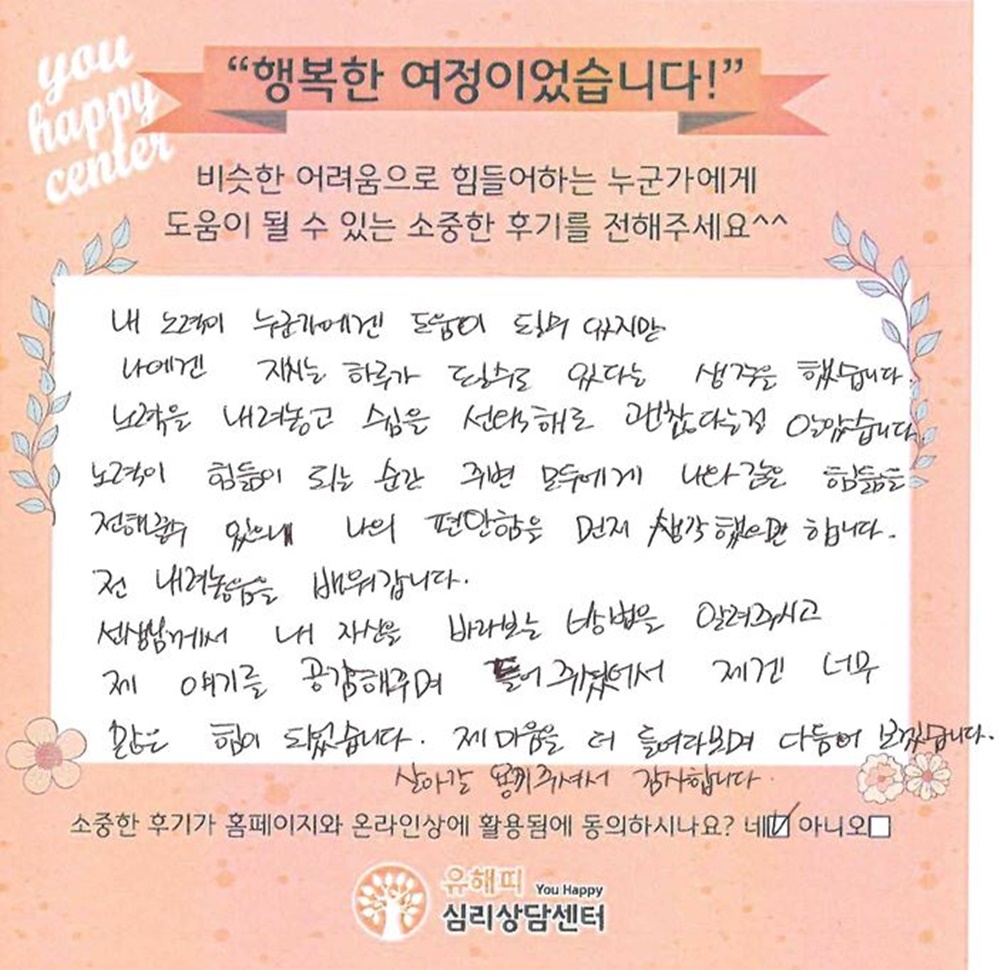 you
happy
center
“행복한 여정이었습니다!”
비슷한 어려움으로 힘들어하는 누군가에게
도움이 될 수 있는 소중한 후기를 전해주세요^^
내 노력이 누군가에겐 도움이 될수 있지만
나에겐 지치는 하루가 될수도 있다는 생각을 했습니다.
노력을 내려놓고 쉼을 선택해도 괜찮다는걸 알았습니다
노력이 힘듦이 되는 순간 주변 모두에게 나와같은 힘듦을
전해줄수 있으니 나의 편안함을 먼저 생각했으면 합니다.
전 내려놓음을 배워갑니다.
선생님께서 내 자신을 바라보는 방법을 알려주시고
제 얘기를 공감해주며 들어주셨어서 제겐 너무
많은 힘이 되었습니다. 제마음을 더 들여다보며 다듬어 보겠습니다.
살아갈 용기주셔서 감사합니다.
소중한 후기가 홈페이지와 온라인상에 활용됨에 동의하시나요? 네☑ 아니오☐
유해피 You Happy
심리상담센터